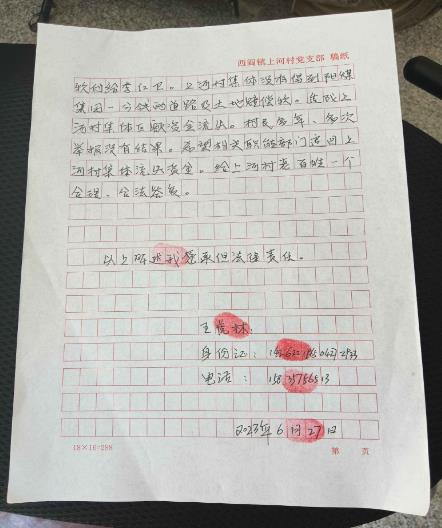 西阎镇上河村党支部 稿纸
款付给李红卫。上河村集体没有得到阳煤
集团一分钱的道路及土地赔偿款。造成上
河村集体巨额资金流失。村民多年、多次
举报没有结果。希望相关职能部门追回上
河村集体流失资金。给上河村老百姓一个
合理、合法答复。
以上所述我愿承担法律责任。
王 林：
身份证：
电话：
2023年6月27日
18×16=288
第 页